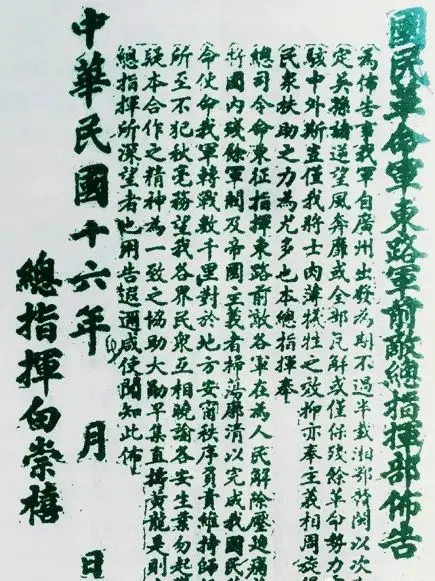 國民革命軍東路軍前敵總指揮部佈告
為佈告事我軍自廣州出發為期不過半載湘鄂贛閩以次
定吳孫諸逆望風奔靡或全部瓦解或僅保殘餘革命勢力
駭中外斯豈僅我將士肉薄犧牲之效抑亦奉主義相周旋
民眾扶助之力為尤多也本總指揮奉
總司令命東征指揮東路前敵各軍在為人民解除壓迫痛
將國內殘餘軍閥及帝國主義者掃蕩廓清以完成我國民
命使命我軍轉戰數千里對於地方安甯秩序負責維持師
所至不犯秋毫務望我各界民眾互相曉諭各安生業勿起
疑本合作之精神為一致之協助大勳早集直搗黃龍是則
總指揮所深望者也用告遐邇咸使聞知此佈
中華民國十六年 月 日
總指揮白崇禧